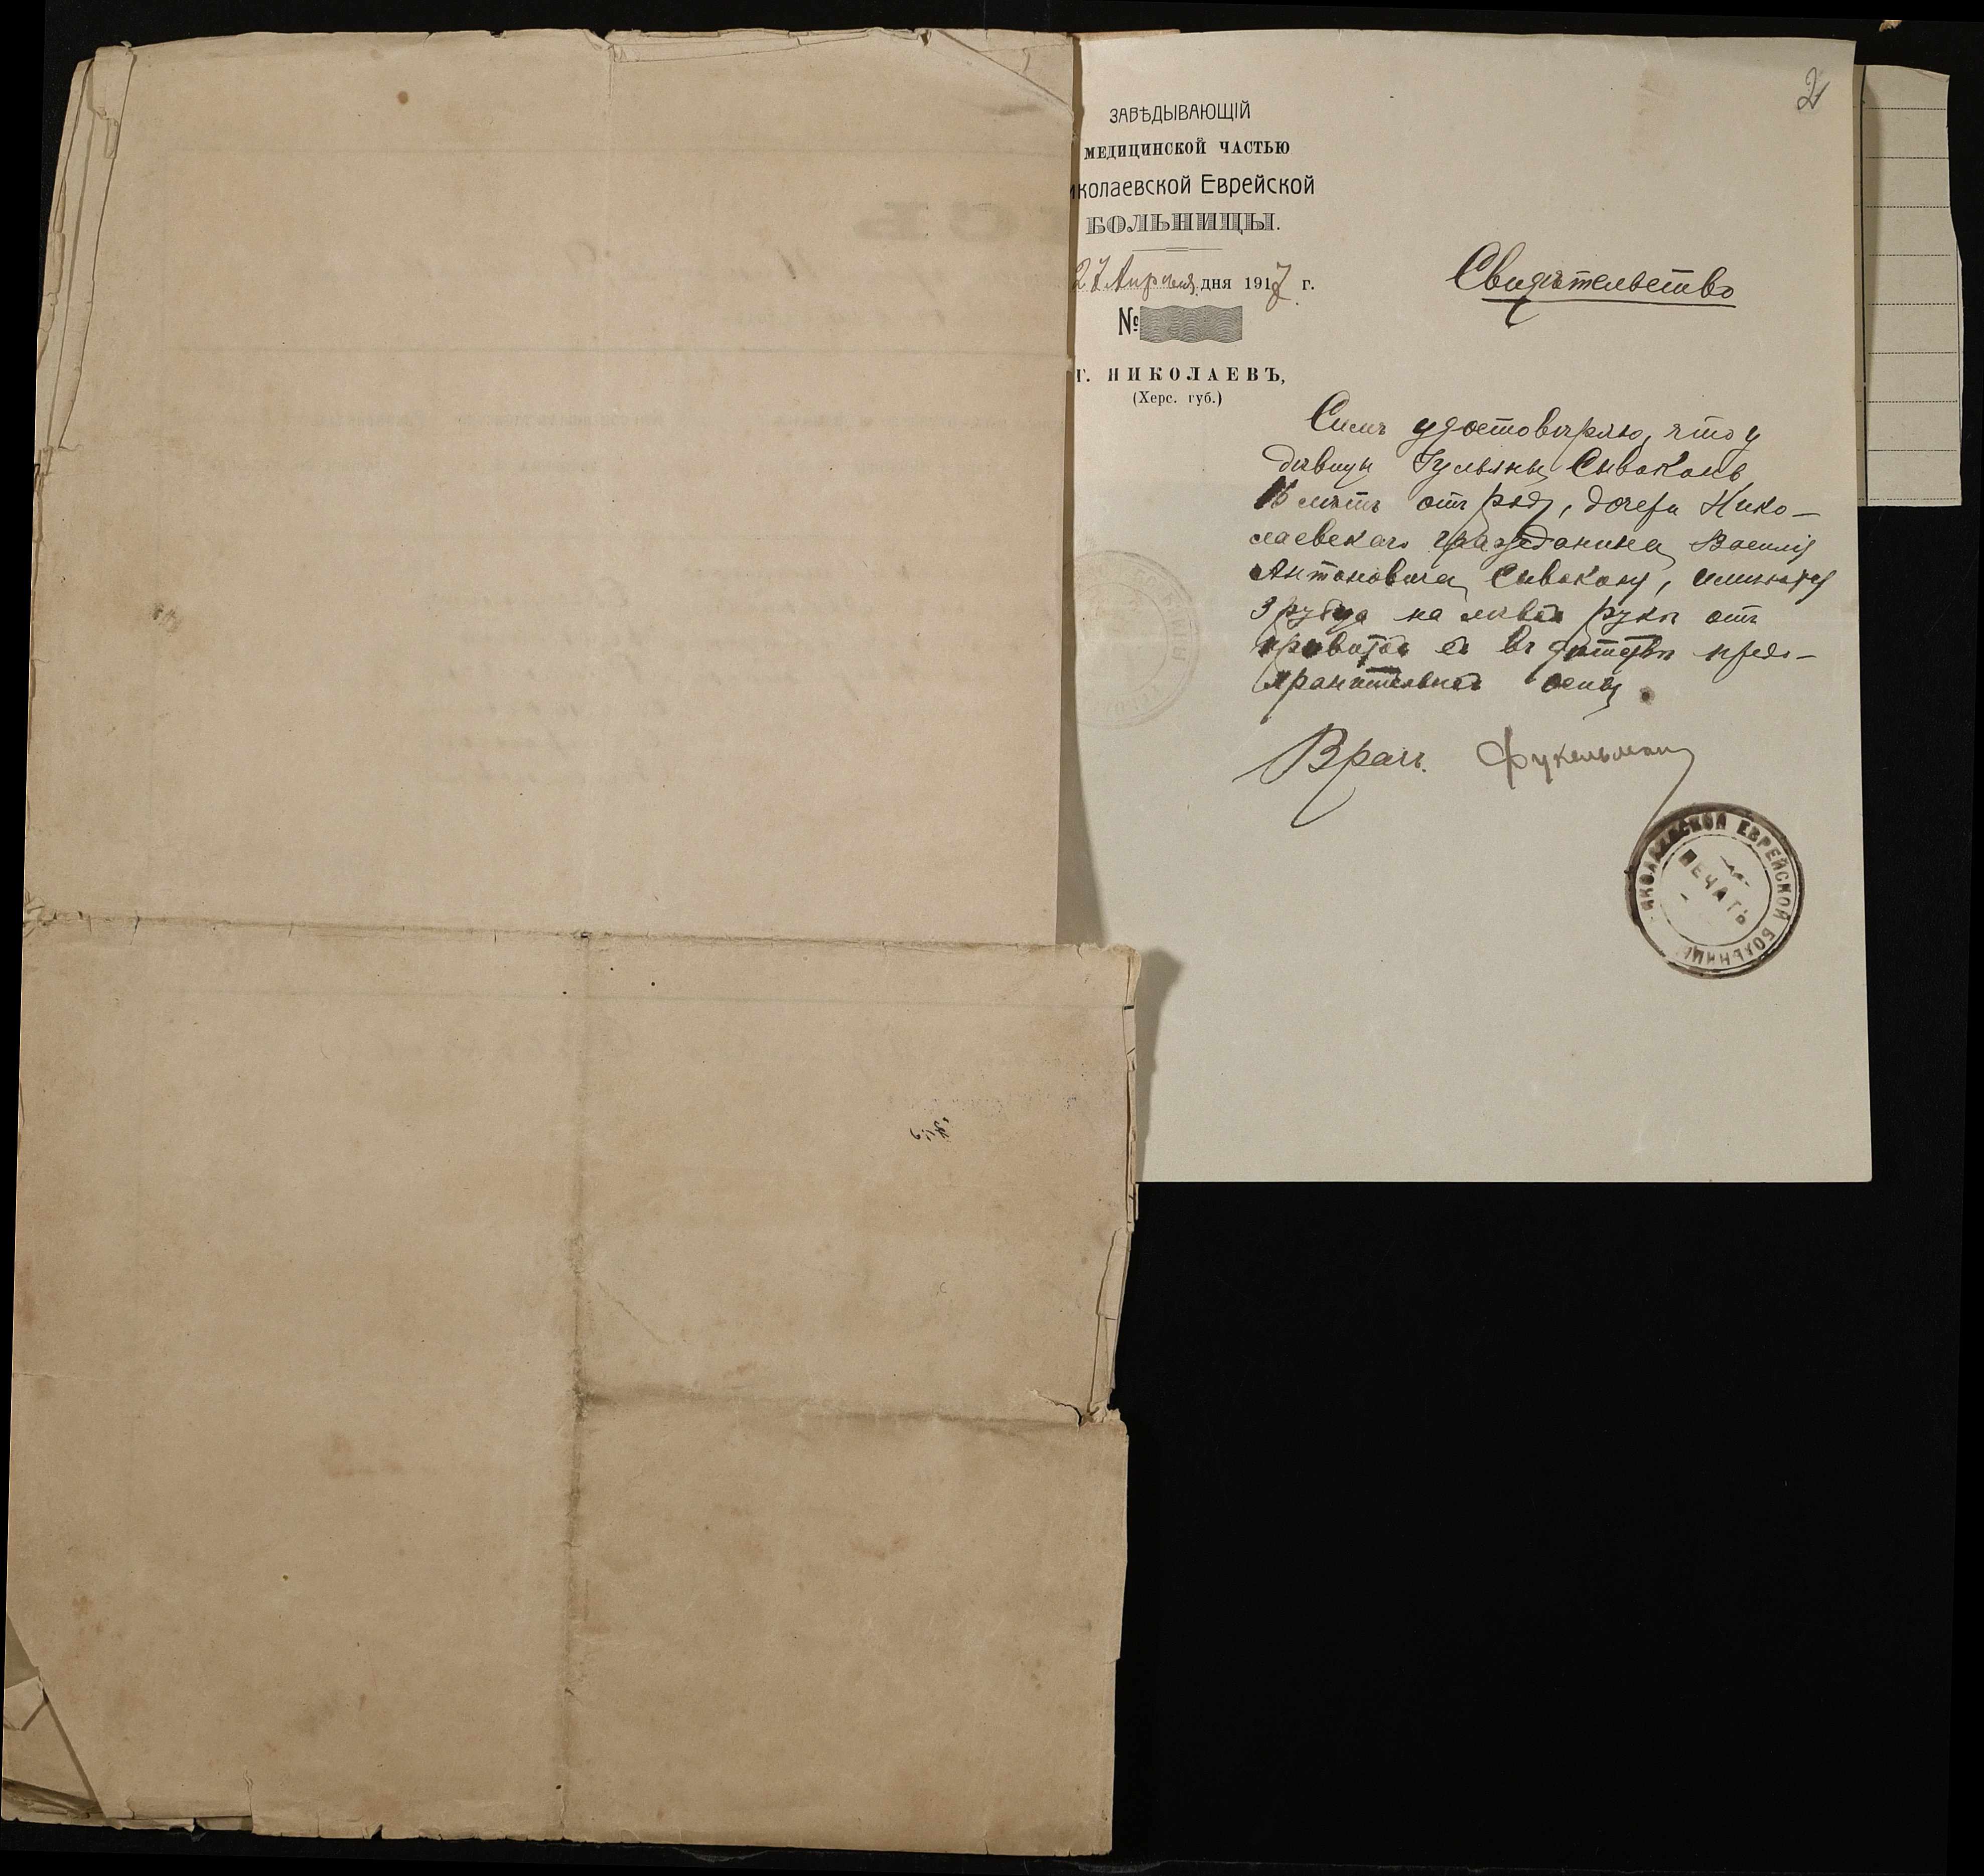 2
ЗАВѢДЫВАЮЩІЙ
МЕДИЦИНСКОЙ ЧАСТЬЮ
иколаевской Еврейской
БОЛЬНИЦЫ.
27 Апрѣля дня 1917 г.
№
Г. НИКОЛАЕВЪ,
(Херс. губ.)
Свидѣтельство
Симъ удостовѣряю, что у
дѣвицы Іульяны Сиваконь
лѣтъ отъ роду, дочери Нико-
лаевскаго гражданина Василія
Антоновича Сиваконь, имѣются
3 рубца на лѣвой рукѣ отъ
привитой ей въ дѣтствѣ предо-
хранительной оспы.
Врачъ Фукельман
НИКОЛАЕВСКОЙ ЕВРЕЙСКОЙ БОЛЬНИЦЫ
ПЕЧАТЬ